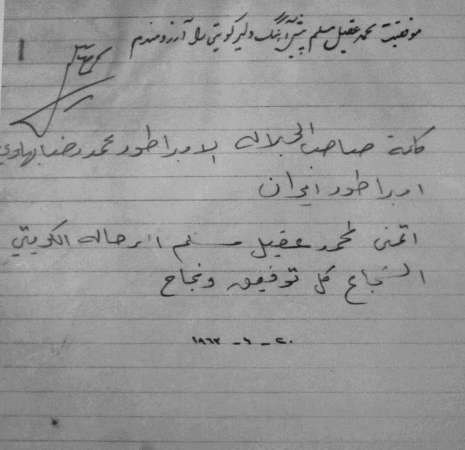 موفقیت محمد عقیل مسلم پیش آهنگ دلیر کویتی را آرزومندم
كلمة صاحب الجلاله الامبراطور محمد رضا بهلوي
امبراطور ايران
اتمنى لمحمد عقيل مسلم الرحاله الكويتي
الشجاع كل توفيق ونجاح
٢٠ - ٦ - ١٩٦٢